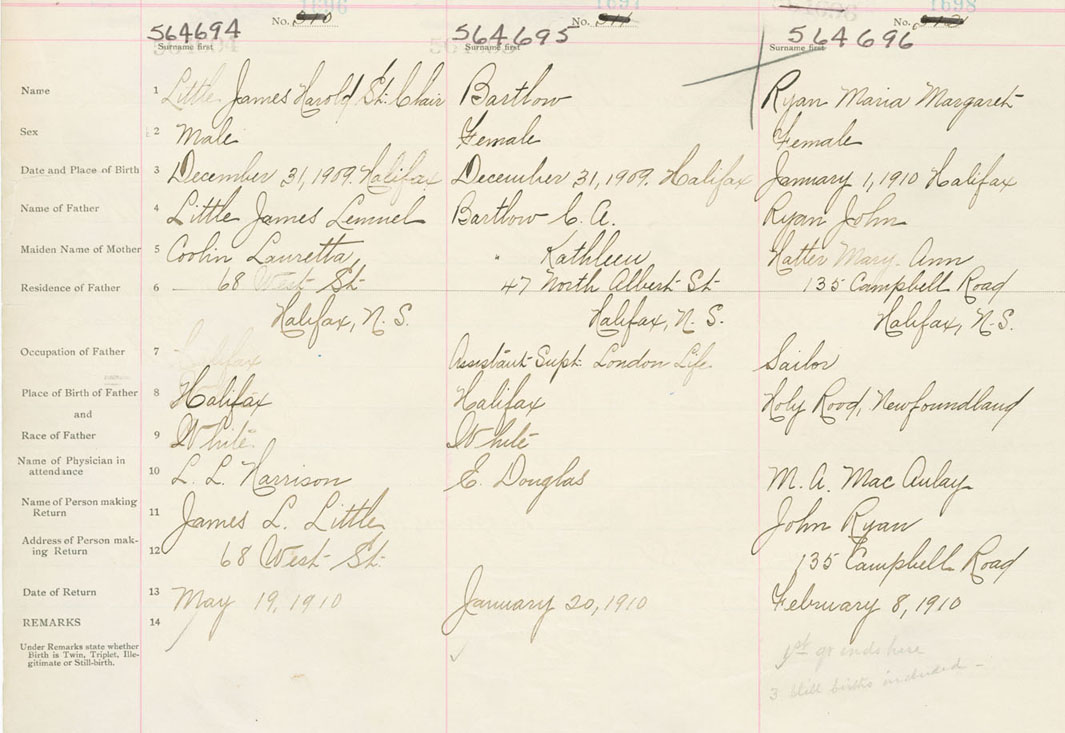 1696 1697 1698
No. 310 No. 311 No. 312
564694 564695 564696
Surname first Surname first Surname first
Name 1 Little James Harold St. Clair Bartlow Ryan Maria Margaret
Sex 2 Male Female Female
Date and Place of Birth 3 December 31, 1909. Halifax December 31, 1909. Halifax January 1, 1910 Halifax
Name of Father 4 Little James Lemuel Bartlow C. A. Ryan John
Maiden Name of Mother 5 Coolin Lauretta " Kathleen Hatter Mary Ann
Residence of Father 6 68 West St. 47 North Albert St. 135 Campbell Road
Halifax, N. S. Halifax, N. S. Halifax, N. S.
Occupation of Father 7 Assistant Supt. London Life Sailor
Place of Birth of Father 8 Halifax Halifax Holy Rood, Newfoundland
and
Race of Father 9 White White
Name of Physician in
attendance 10 L. L. Harrison E. Douglas M. A. Mac Aulay
Name of Person making
Return 11 James L. Little John Ryan
Address of Person mak-
ing Return 12 68 West St. 135 Campbell Road
Date of Return 13 May 19, 1910 January 20, 1910 February 8, 1910
REMARKS 14
Under Remarks state whether
Birth is Twin, Triplet, Ille-
gitimate or Still-birth.
1st qr ends here
3 still births included -